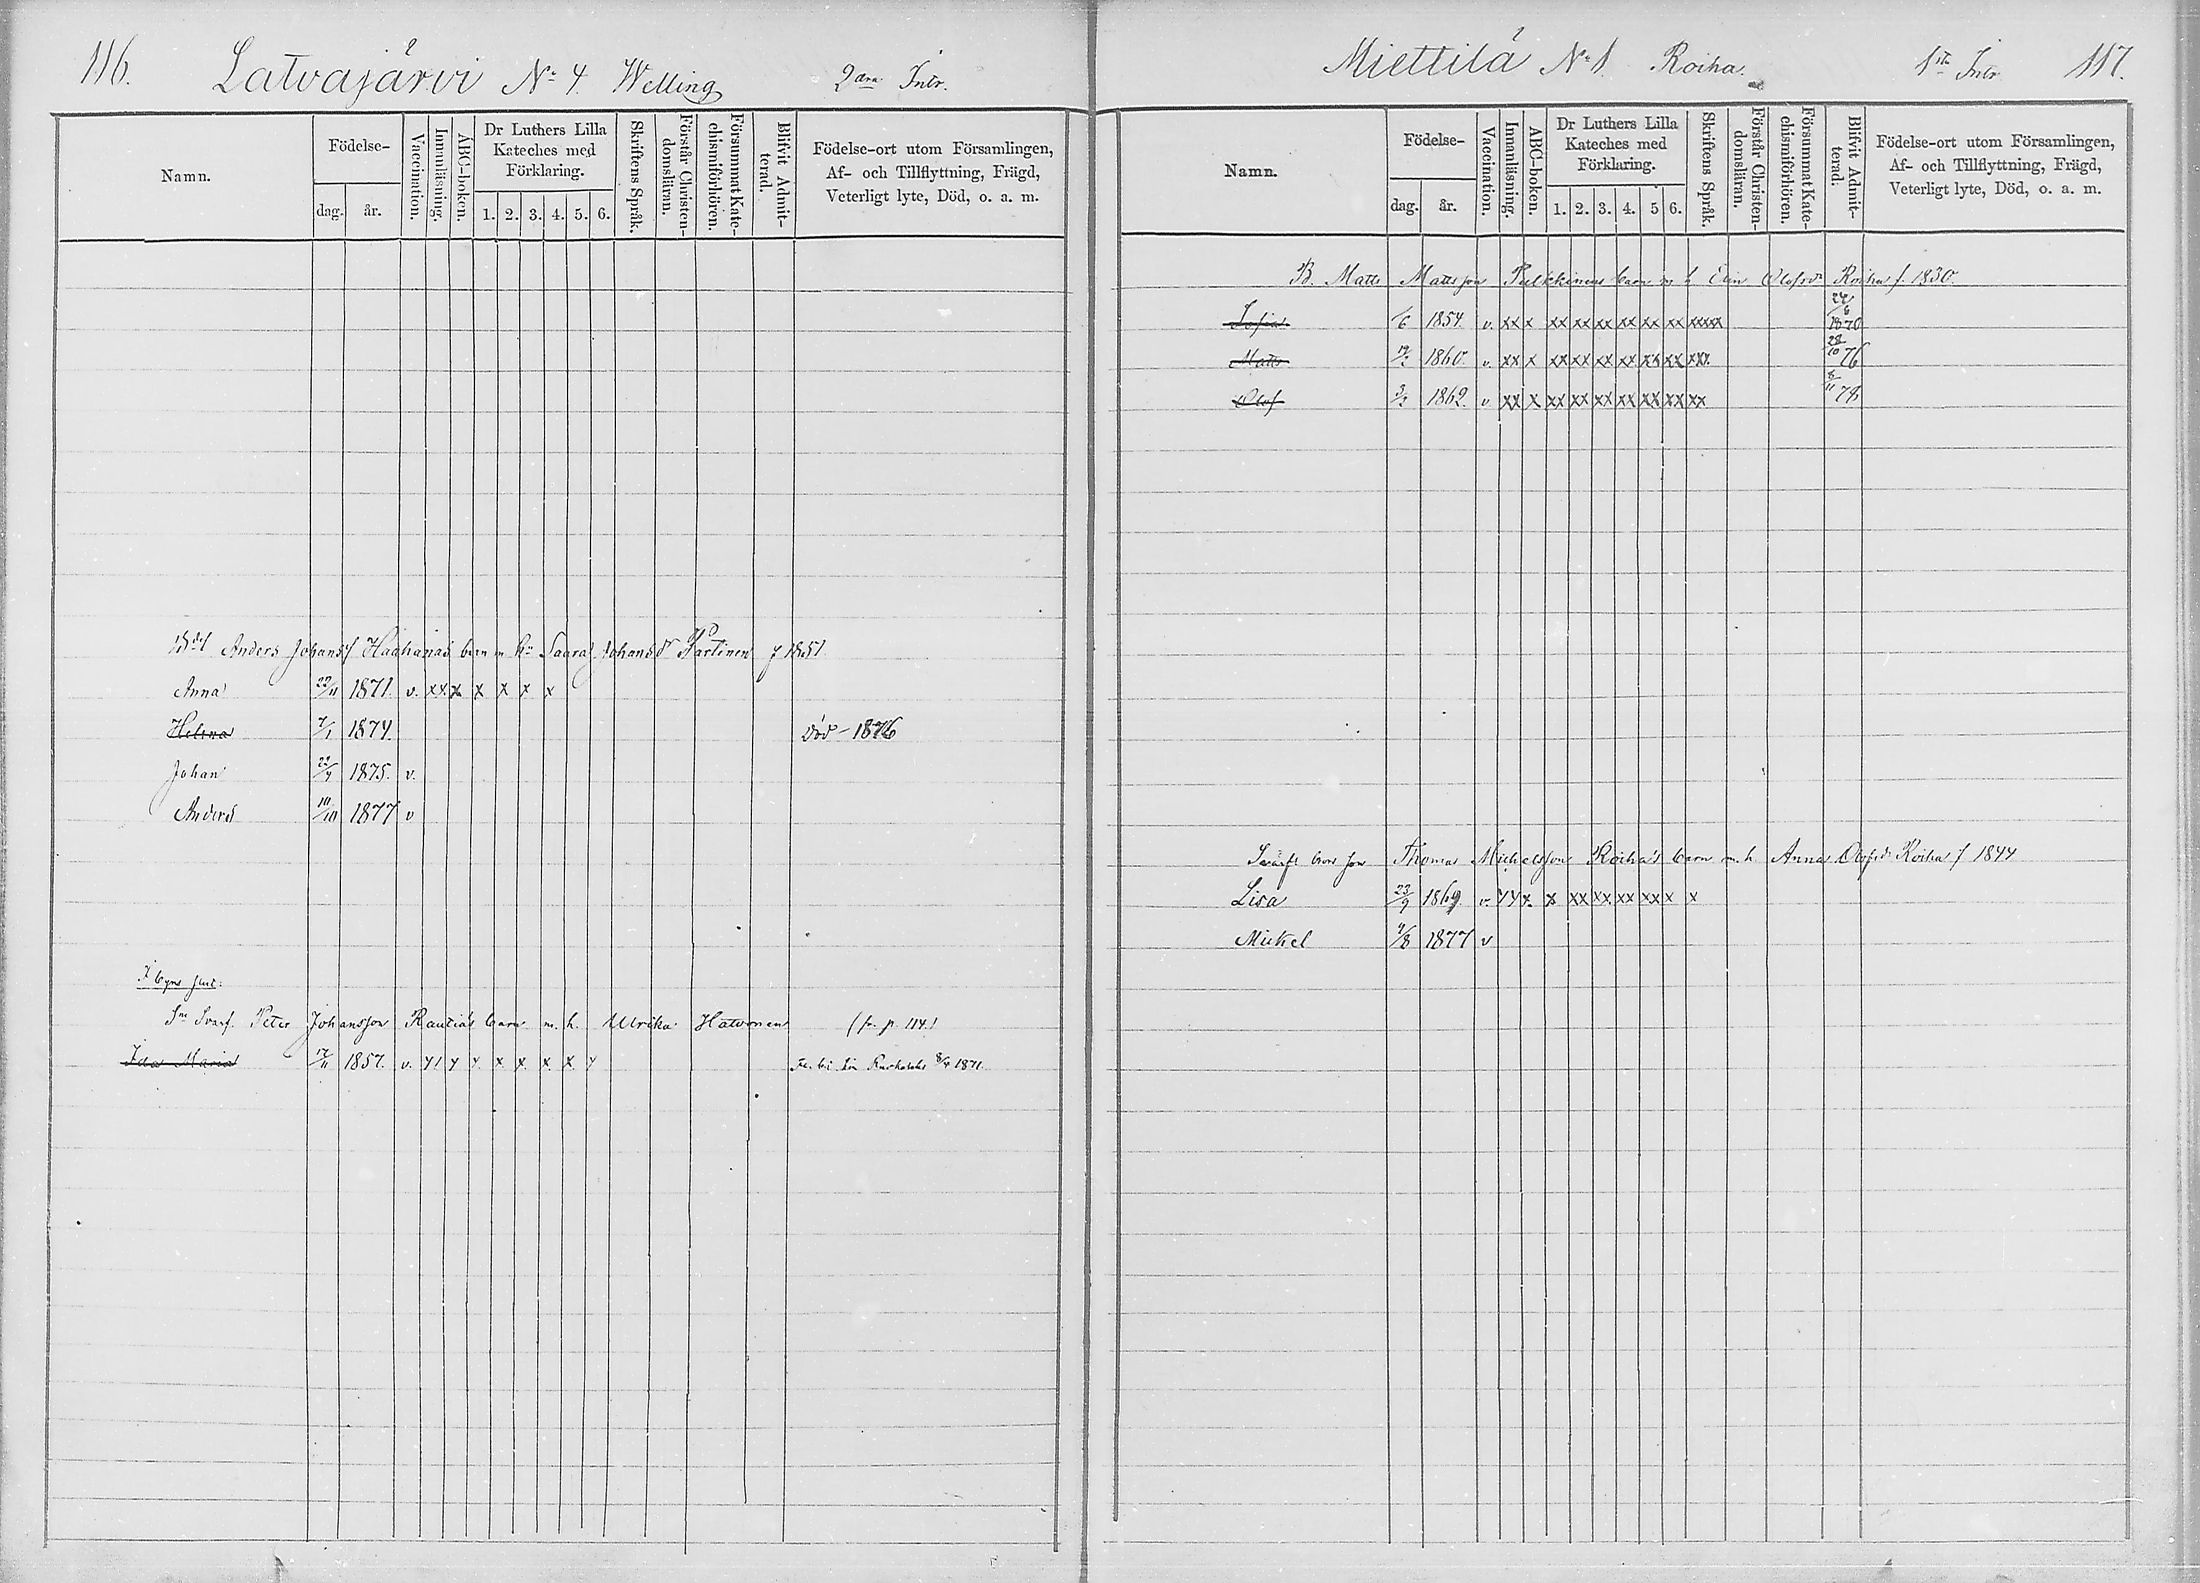 116. Latvajärvi No 4. Welling 2dra Intr.
Namn.
Födelse-
dag. år.
Vaccination.
Innanläsning.
ABC-boken.
Dr Luthers Lilla
Kateches med
Förklaring.
1. 2. 3. 4. 5. 6.
Skriftens Språk.
Förstår Christen-
domsläran.
Försummat Kate-
chismiförhören.
Blifvit Admit-
terad.
Födelse-ort utom Församlingen,
Af- och Tillflyttning, Frägd,
Veterligt lyte, Död, o. a. m.
Anders Johanss Haahanas barn m. hu Saara Johansdr Partinen f 1851
Anna 22/11 1871. v. xx x x x x x
Helena 7/1 1874. död 1876
Johan 22/9 1875. v.
Anders 10/10 1877 v
I byns jus:
Peter Johansson Rautias barn m. h. Ulrika Hatvonen (fr. p. 114.)
Ida Maria 17/11 1857. v. x x x x x x x x 1871.
Miettilä No 1. Roiha. 1sta Intr 117.
Namn.
Födelse-
dag. år.
Vaccination.
Innanläsning.
ABC-boken.
Dr Luthers Lilla
Kateches med
Förklaring.
1. 2. 3. 4. 5 6.
Skriftens Språk.
Förstår Christen-
domsläran.
Försummat Kate-
chismiförhören.
Blifvit Admit-
terad.
Födelse-ort utom Församlingen,
Af- och Tillflyttning, Frägd,
Veterligt lyte, Död, o. a. m.
B. Matts Mattsson Pulkkinens barn m h Olofsdr Roiha f. 1830.
Sofia 1/6 1854. v. xx x xx xx xx xx xx xx xxxx 24/6 1870
Matts 19/2 1860. v. xx x xx xx xx xx xx xx xxx 28/10 76
Olof 3/2 1862. v xx x xx xx xx xx xx xx xx 3/11 78
Thomas Michelsson Roiha's barn m. h Anna Olofsdr Roiha f 1844
Lisa 23/9 1869. v. xx x x xx xx xx xx x x
Mickel 9/8 1877 v